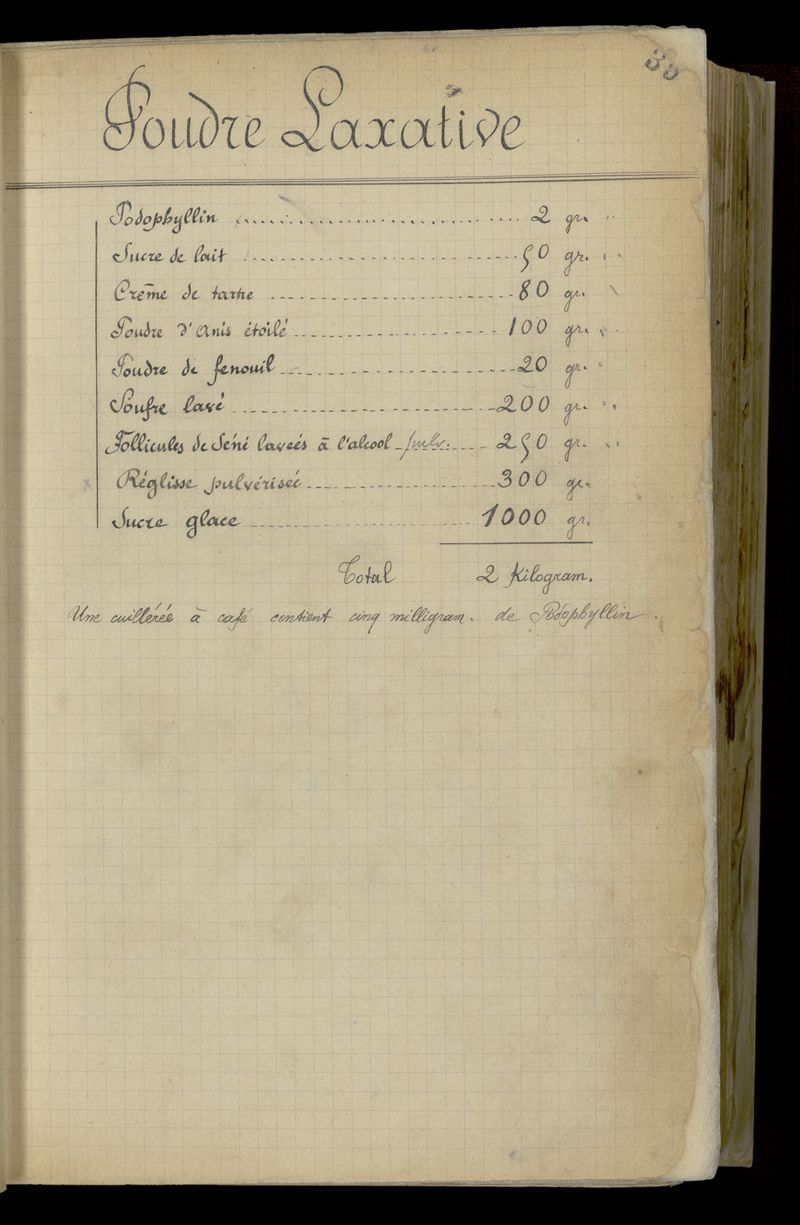 Poudre Laxative
Podophyllin ........ 2 gr.
Sucre de lait ........ 50 gr.
Crême de tartre ........ 80 gr.
Poudre d'Anis étoilé ........ 100 gr.
Poudre de fenouil ........ 20 gr.
Soufre lavé ........ 200 gr.
Follicules de Séné laveés à l'alcool pulv. ........ 250 gr.
Réglisse pulvérisée ........ 300 gr.
Sucre glace ........ 1000 gr.
Total 2 Kilogram.
Une cuillérée à café contient cinq milligram. de Podophyllin.